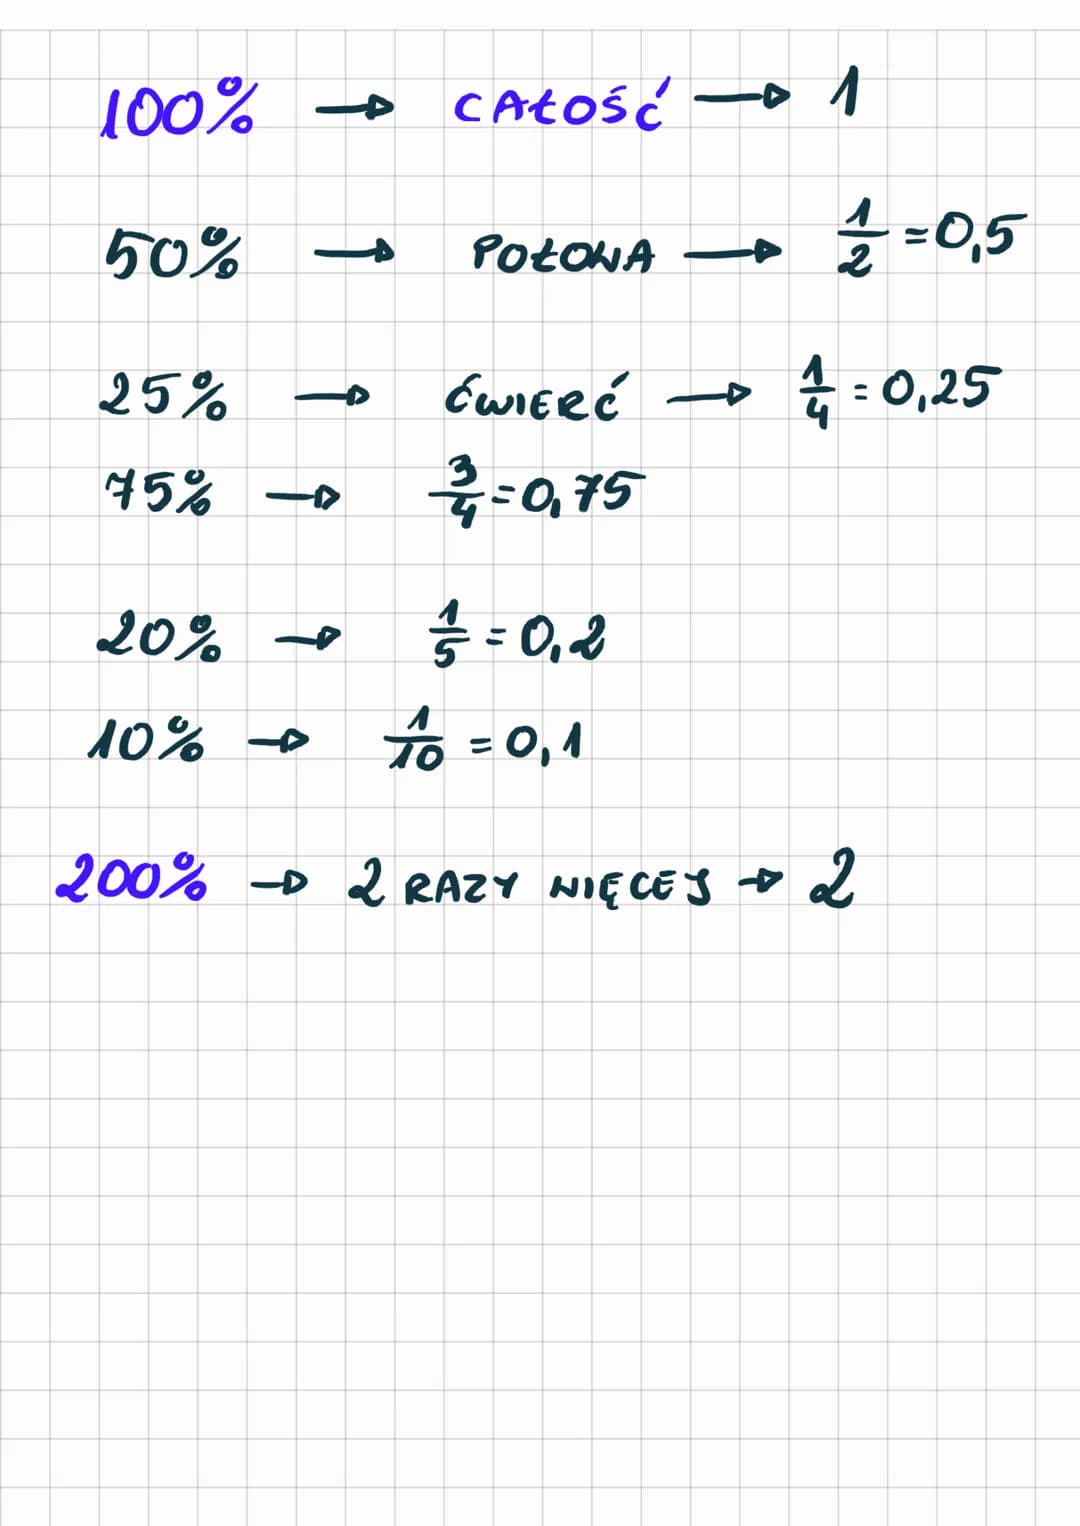 100% → CAŁOŚĆ → 1
50% → POŁOWA → 1/2 = 0,5
25% → ĆWIERĆ → 1/4 = 0,25
75% → 3/4 = 0,75
20% → 1/5 = 0,2
10% → 1/10 = 0,1
200% → 2 RAZY WIĘCEJ → 2